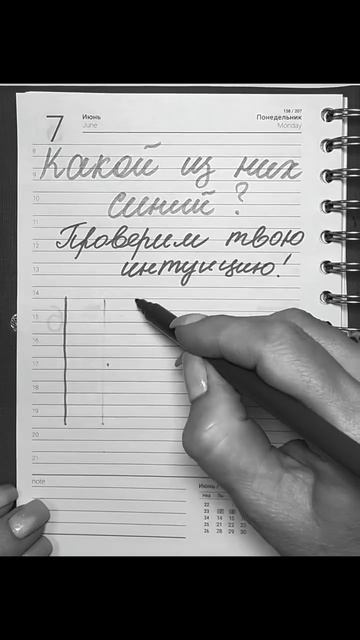 7 Июнь June 158 / 207 Понедельник Monday
8
9
Какой из них
10
синий?
11
12
Проверим твою
13
интуицию!
14
15
16
17
18
19
20
21
note
Июнь
22
23
24 14 15
25 21 22
26 28 29 30